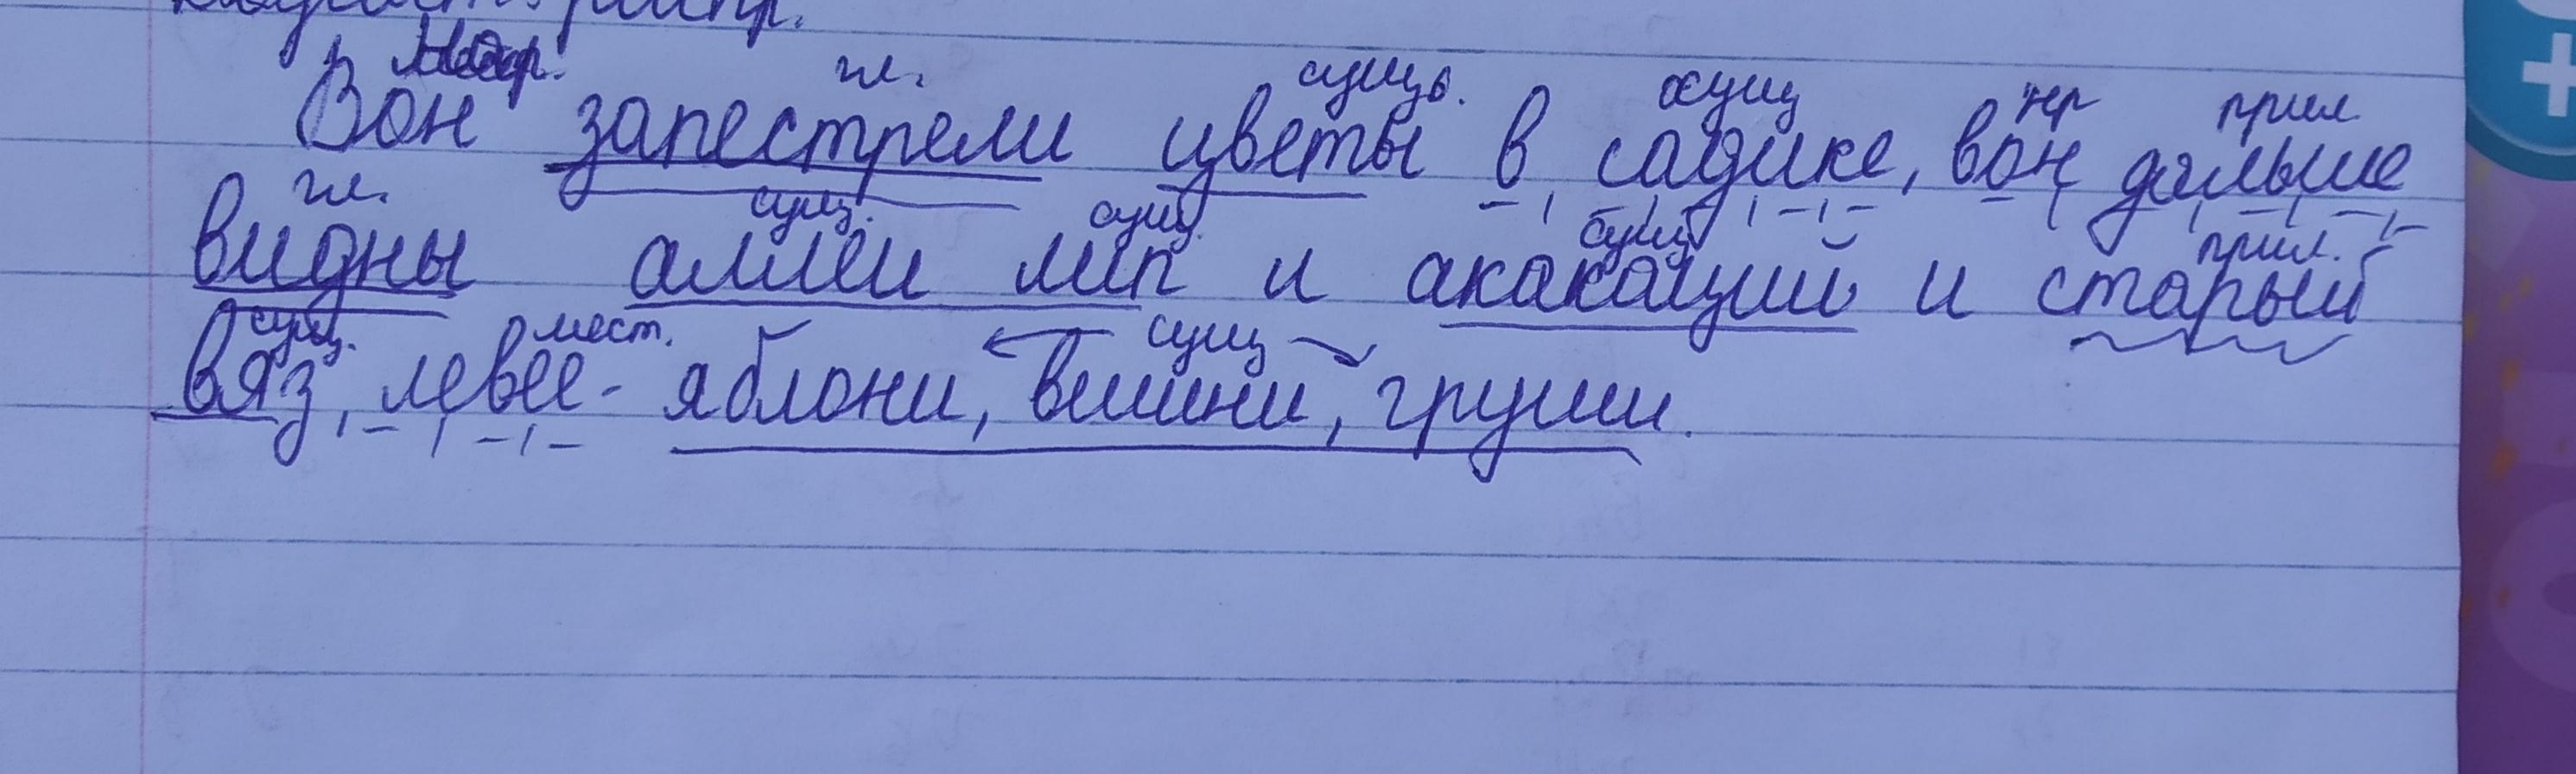 Нар. гл. сущ. сущ нр прил.
Вон запестрели цветы в садике, вон дальше
гл. сущ. сущ. сущ прил.
видны аллеи лип и акакаций и старый
сущ. мест. сущ
вяз, левее - яблони, вишни, груши.